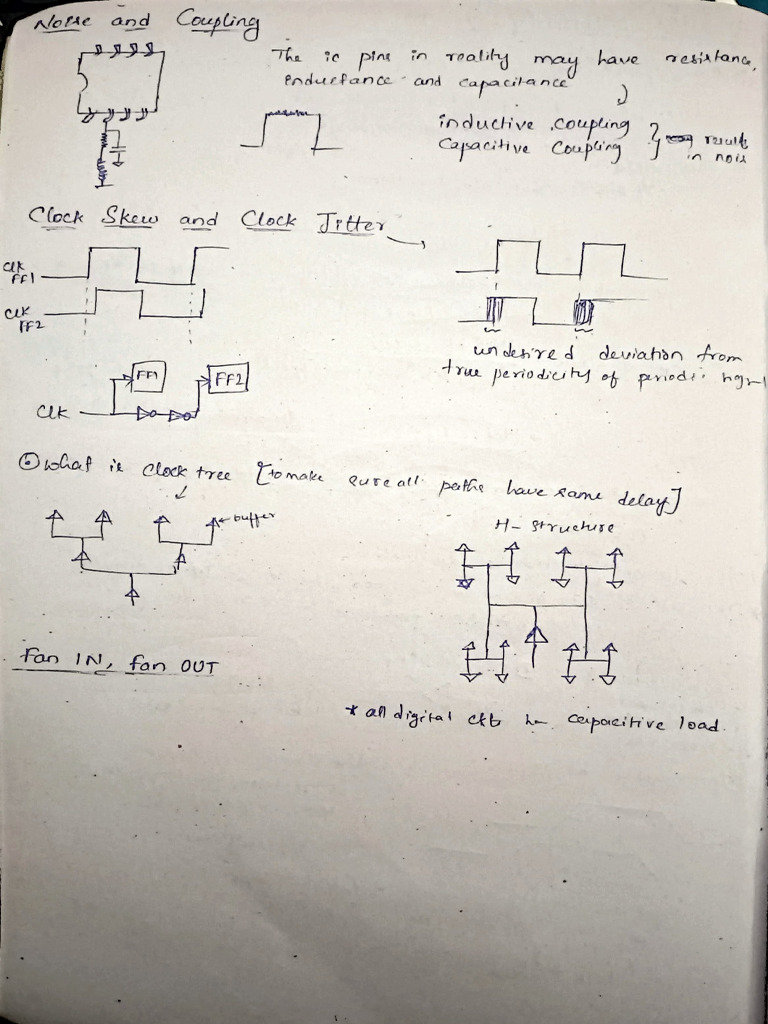 Noise and Coupling
The ic pins in reality may have resistance,
inductance and capacitance
inductive coupling
Capacitive Coupling
results
in nois
Clock Skew and Clock Jitter
Clk
FF1
Clk
FF2
FF1
FF2
Clk
undesired deviation from
true periodicity of periodi
What is clock tree [to make sure all paths have same delay]
buffer
H- structure
Fan IN, fan OUT
* all digital ckts capacitive load.